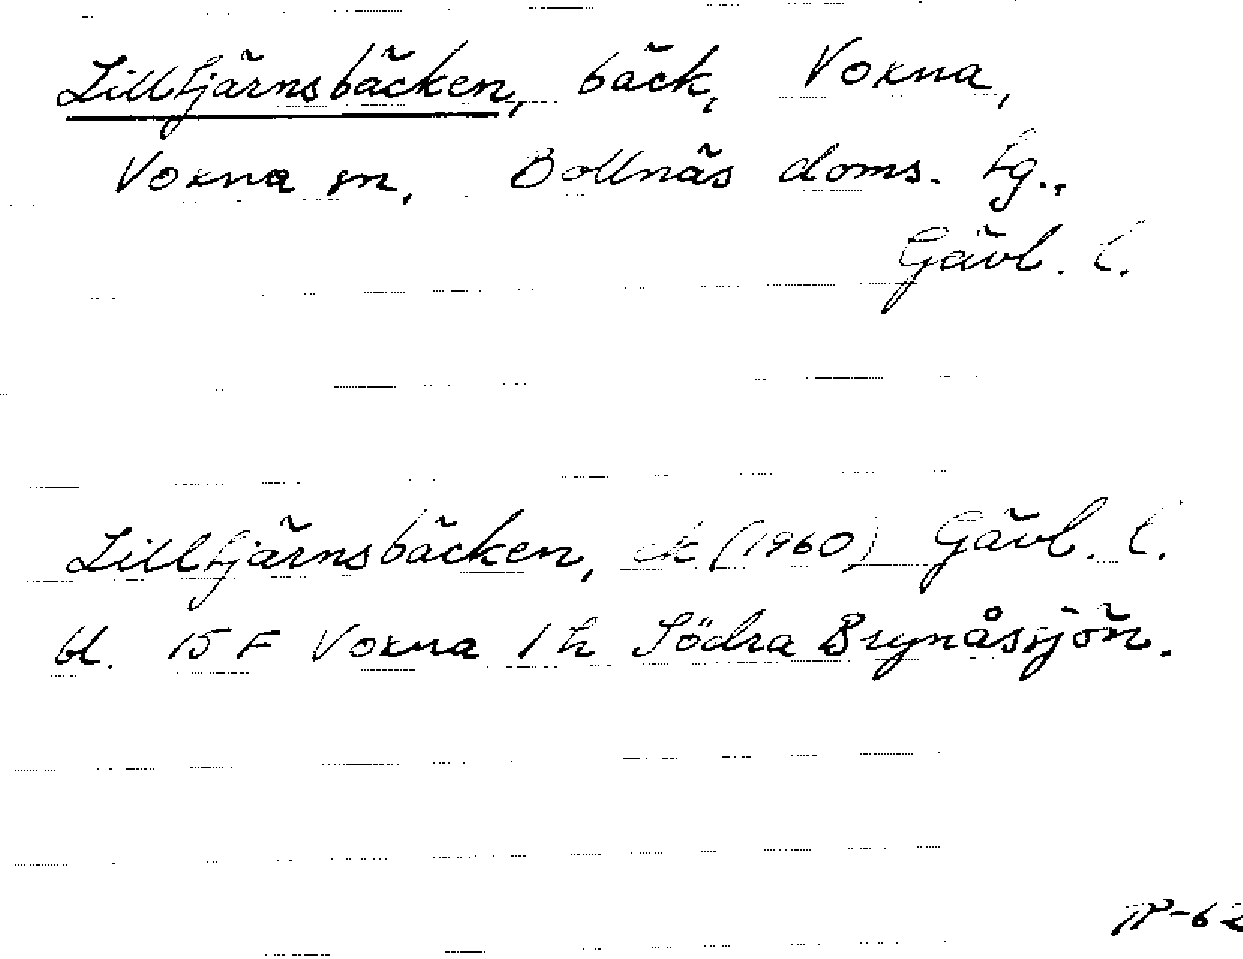 Lilltjärnsbäcken, bäck, Voxna,
Voxna sn, Bollnäs doms. tg.,
Gävl. l.
Lilltjärnsbäcken, ek (1960) Gävl. l.
bl. 15 F Voxna 1 h Södra Brynåssjön.
-62